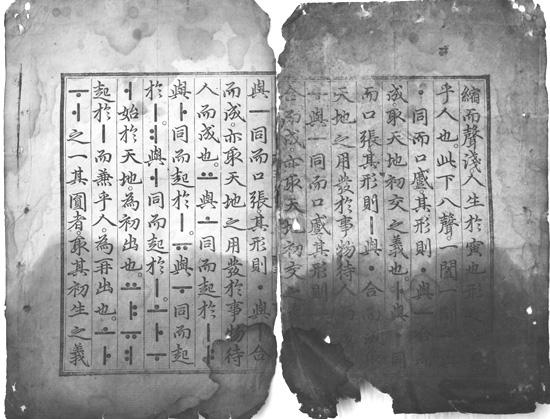 縮而聲淺人生於寅也形
乎人也。此下八聲。一闔一
ㆍ同而口蹙其形則ㆍ與ㅡ
成取天地初交之義也ㅏ與 同
而口張其形則ㅣ與ㆍ合而
天地之用發於事物待人
與ㅡ同而口蹙其形則
合而成亦取天地初交之
與ㅡ同而口張其形則ㆍ與 合
而成。亦取天地之用發於事物待
人而成也。ㅛ與ㅗ同而起於ㅣ
ㅑ與ㅏ同而起於ㅣ。ㅠ與ㅜ同而起
於ㅣ。ㅕ與ㅓ同而起於ㅣ。ㅗㅏㅜ
ㅓ始於天地。為初出也。ㅛㅑㅠㅕ
起於ㅣ而兼乎人。為再出也。ㅗㅏ
ㅜㅓ之一其圓者。取其初生之義